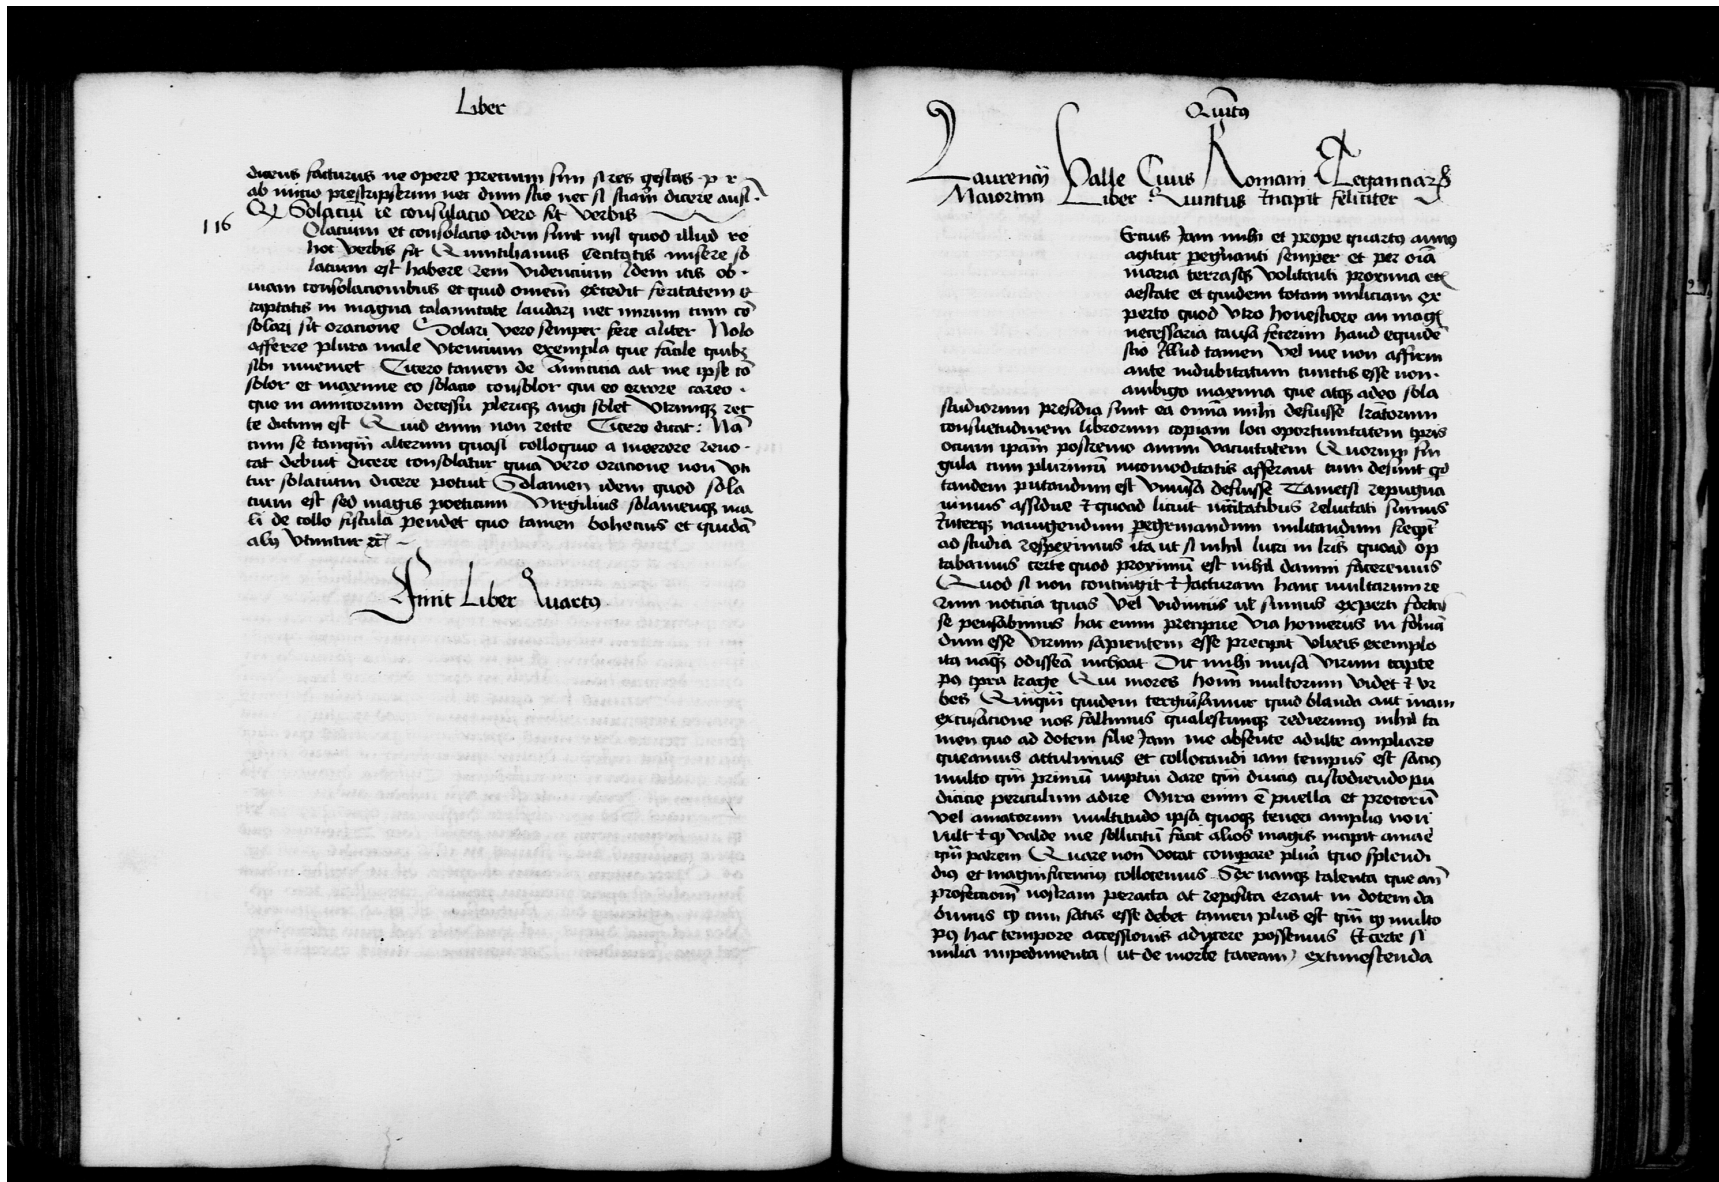 Liber
dicens facturus ne opere precium sim si res gestas p r
ab inicio prescripserim nec dum scio nec si sciam dicere ausi
Qd Solaciū re consulacio vero fit verbis
116
Olacium et consolacio idem sunt nisi quod illud re
hoc verbis fit Quintilianus Cecitatis misere so
lacium est habere rem videncium Idem itis ob
uiam consolacionibus et quid omnem excedit feritatem
captatis in magna calamitate laudari nec mirum cum cō
solari sit oracione Solari vero semper fere aliter Nolo
afferre plura male vtencium exempla que facile quibꝫ
sibi inueniet Cicero tamen de Amicicia ait me ipse cō
solor et maxime eo solacio consolor qui eo errore careo
quo in amicorum decessu pleriqꝫ angi solet Vtrūqꝫ rec
te dictum est Quid enim non recte Cicero dicat: Nā
cum se tanqm̄ alterum quasi colloquio a moerore reuo
cat debuit dicere consolatur quia vero oracione non vti
tur solatum dicere potuit Solamen idem quod sola
cium est sed magis poeticum Virgilius solamenqꝫ ma
li de collo fistula pendet quo tamen bohecius et quidā
alij vtuntur
Finit Liber Quartꝯ
Quītꝯ
Laurencij Valle Ciuis Romani Eleganciarꝝ
Maiorum Liber Quintus Incipit feliciter
Ercius Jam mihi et prope quartꝯ annꝯ
agitur peg̃nanti semper et per oīa
maria terrasqꝫ volitanti proxima
aestate et quidem totam miliciam ex
perto quod vtro honestiore an magꝭ
necessaria causa fecerim haud equidē
scio Illud tamen vel me non affirm
ante indubitatum cunctis esse non
ambigo maxima que atqꝫ adeo sola
studiorum presidia sunt ea omīa mihi defuisse lrātorum
consuetudinem librorum copiam loci oportunitatem tp̄ris
ocium ipam̄ postremo animi vacuitatem Quorum sin
gula cum plurimū incomoditatis afferant cum desunt qd
tandem putandum est vniuersa defuisse Tametsi repugna
uimus assidue et quoad licuit
Interqꝫ nauigendum pegrinandum militandum
ad studia respeximus ita ut si nihil lucri in lrīs quoad op
tabamus certe quod proximū est nihil damni faceremus
Quod si non contingit et Jacturam hanc multarum re
rum noticia quas vel vidimus ut sumus experti fortas
se pensabimus hac enim precipue via homerus in
dum esse virum sapientem esse precipit vlixis exemplo
ita naqꝫ odisseā inchoat Dic mihi musa virum capte
pꝯ tpra troge Qui mores hom̄ multorum vidit et vr
bes Qinqm̄ quidem tergiuersamur quid blanda aut inani
excusacione nos fallimus qualescunqꝫ redierimꝯ nihil ta
men quo ad dotem filie Jam me absente adulte ampliare
queamus attulimus et collocandi iam tempus est sacius
multo qm̄ primū nuptui dare qm̄ diucius custodiendo pu
dicicie periculum adire Mira enim ē puella et procorū
vel amatorum multitudo ipsa quoqꝫ teneri amplius non
vult et qd valde me sollicitū facit alios magis incipit amare
qm̄ patrem Quare non vacat comparare plura quo splendi
dius et magnificencius collocemus Sex nanqꝫ talenta que an̄
profectionē nostram peracta ac reposita erant in dotem da
bimus qd cum satis esse debet tamen plus est qm̄ qd multo
pꝯ hac tempore accessionis adijcere possemus Et certe si
milia impedimenta (ut de morte taceam) extimescenda